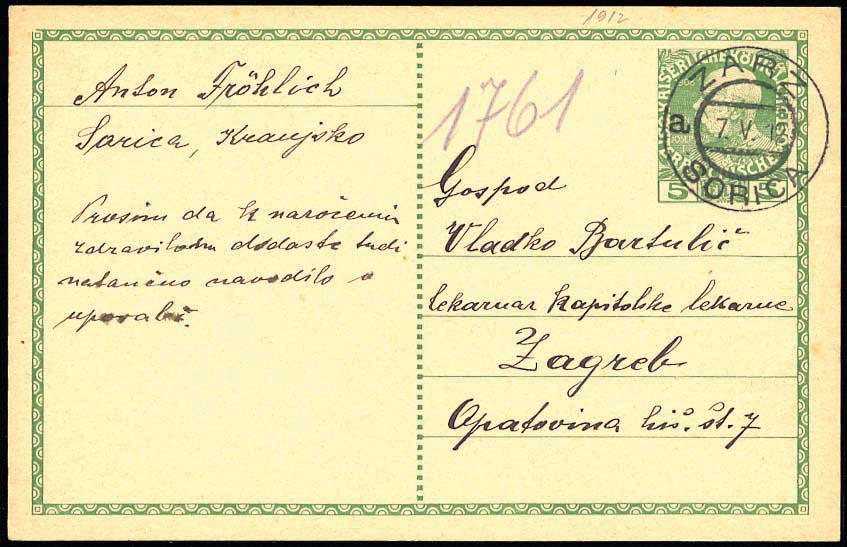 1912
Anton Fröhlich
Sorica, Kranjsko
Prosim da k naročenim
zdravilom dodaste tudi
natančno navodilo o
uporabi.
1761
ZARZ
a
7. V. 12
SORICA
5 5
Gospod
Vladko Bartulić
lekarnar Kapitolske lekarne
Zagreb
Opatovina hiš. št. 7